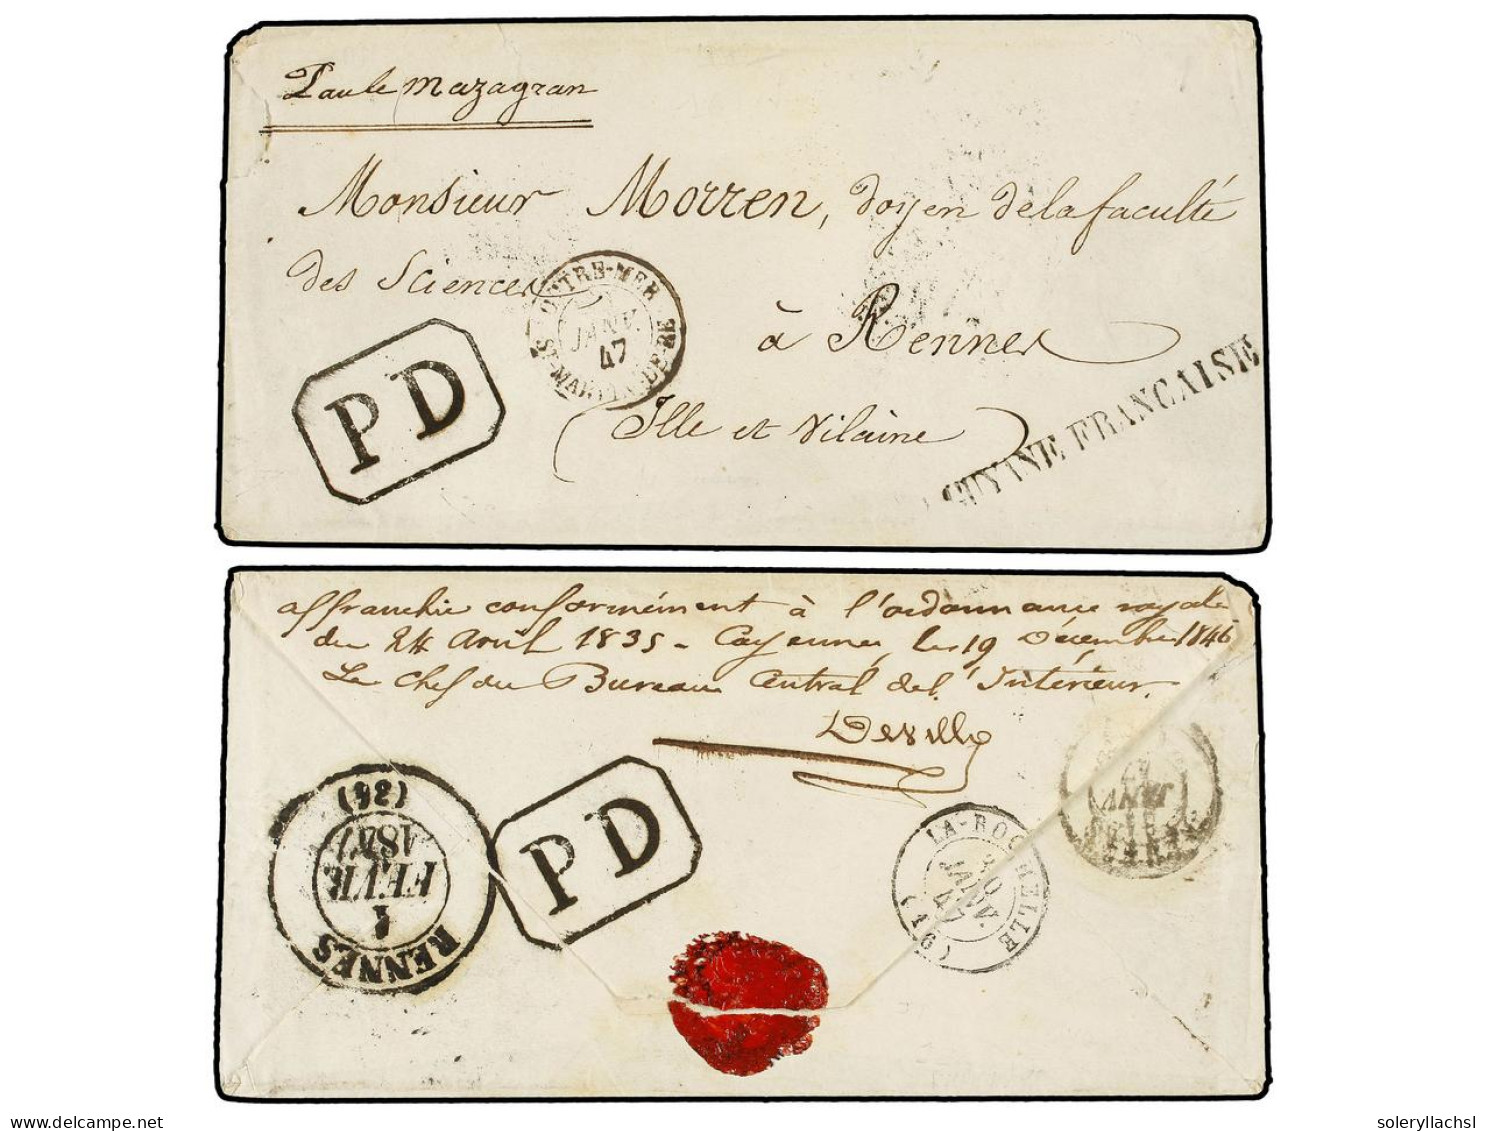 Par le Mazagran
Monsieur Morren, doyen de la faculté
des Sciences
à Rennes
Ille et Vilaine
OUTRE-MER
JANV.
47
ST MARTIN-DE-RE
PD
GUYANE FRANCAISE
affranchie conformément à l'ordonnance royale
du 24 Avril 1835 - Cayenne, le 19 Décembre 1846
Le Chef du Bureau Central de l'Intérieur.
(34)
1
FEVR
1847
RENNES
PD
LA-ROCHELLE
30
JANV.
47
(16)
JANV
47
delcampe.net
soleryllachsl